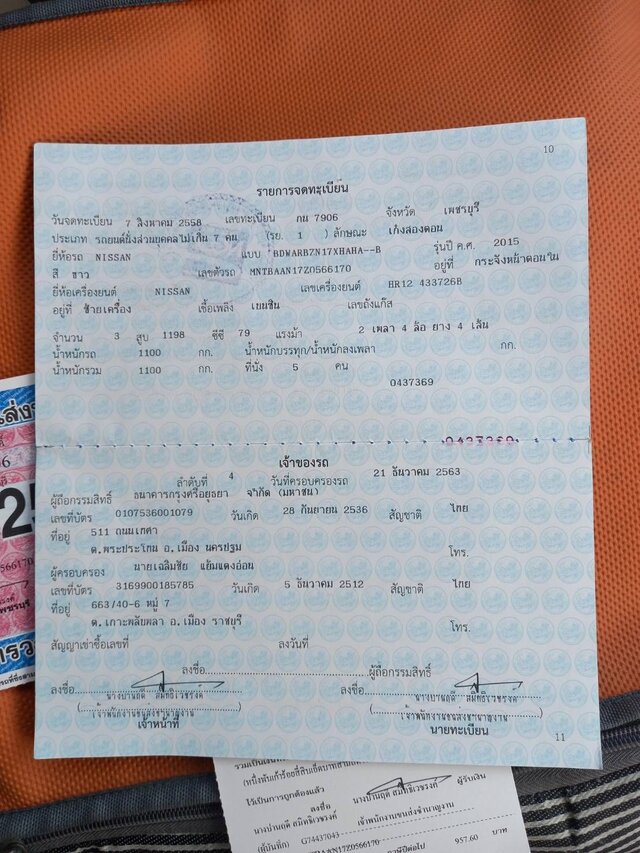 10
รายการจดทะเบียน
วันจดทะเบียน 7 สิงหาคม 2558 เลขทะเบียน กน 7906 จังหวัด เพชรบุรี
ประเภท รถยนต์นั่งส่วนบุคคลไม่เกิน 7 คน (รย. 1 ) ลักษณะ เก๋งสองตอน
ยี่ห้อรถ NISSAN แบบ BDWARBZN17XHAHA--B รุ่นปี ค.ศ. 2015
สี ขาว เลขตัวรถ MNTBAAN17Z0566170 อยู่ที่ กระจังหน้าตอนใน
ยี่ห้อเครื่องยนต์ NISSAN เลขเครื่องยนต์ HR12 433726B
อยู่ที่ ซ้ายเครื่อง เชื้อเพลิง เบนซิน เลขถังแก๊ส
จำนวน 3 สูบ 1198 ซีซี 79 แรงม้า 2 เพลา 4 ล้อ ยาง 4 เส้น
น้ำหนักรถ 1100 กก. น้ำหนักบรรทุก/น้ำหนักลงเพลา กก.
น้ำหนักรวม 1100 กก. ที่นั่ง 5 คน
0437369
0437369
เจ้าของรถ
ลำดับที่ 4 วันที่ครอบครองรถ 21 ธันวาคม 2563
ผู้ถือกรรมสิทธิ์ ธนาคารกรุงศรีอยุธยา จำกัด (มหาชน)
เลขที่บัตร 0107536001079 วันเกิด 28 กันยายน 2536 สัญชาติ ไทย
ที่อยู่ 511 ถนนเทศา
ต.พระประโทน อ.เมือง นครปฐม โทร.
ผู้ครอบครอง นายเฉลิมชัย แย้มแดงอ่อน
เลขที่บัตร 3169900185785 วันเกิด 5 ธันวาคม 2512 สัญชาติ ไทย
ที่อยู่ 663/40-6 หมู่ 7
ต.เกาะพลับพลา อ.เมือง ราชบุรี โทร.
สัญญาเช่าซื้อเลขที่ ลงวันที่
ลงชื่อ ผู้ถือกรรมสิทธิ์
ลงชื่อ ลงชื่อ
นางบานฤดี สมิทธิเวชรงค์ นางบานฤดี สมิทธิเวชรงค์
(เจ้าพนักงานขนส่งชำนาญงาน) (เจ้าพนักงานขนส่งชำนาญงาน)
เจ้าหน้าที่ นายทะเบียน
11
ไว้เป็นการถูกต้องแล้ว
ลงชื่อ นางบานฤดี สมิทธิเวชรงค์ ผู้รับเงิน
นางบานฤดี สมิทธิเวชรงค์ เจ้าพนักงานขนส่งชำนาญงาน
(ผู้บันทึก) G74437043
957.60 บาท